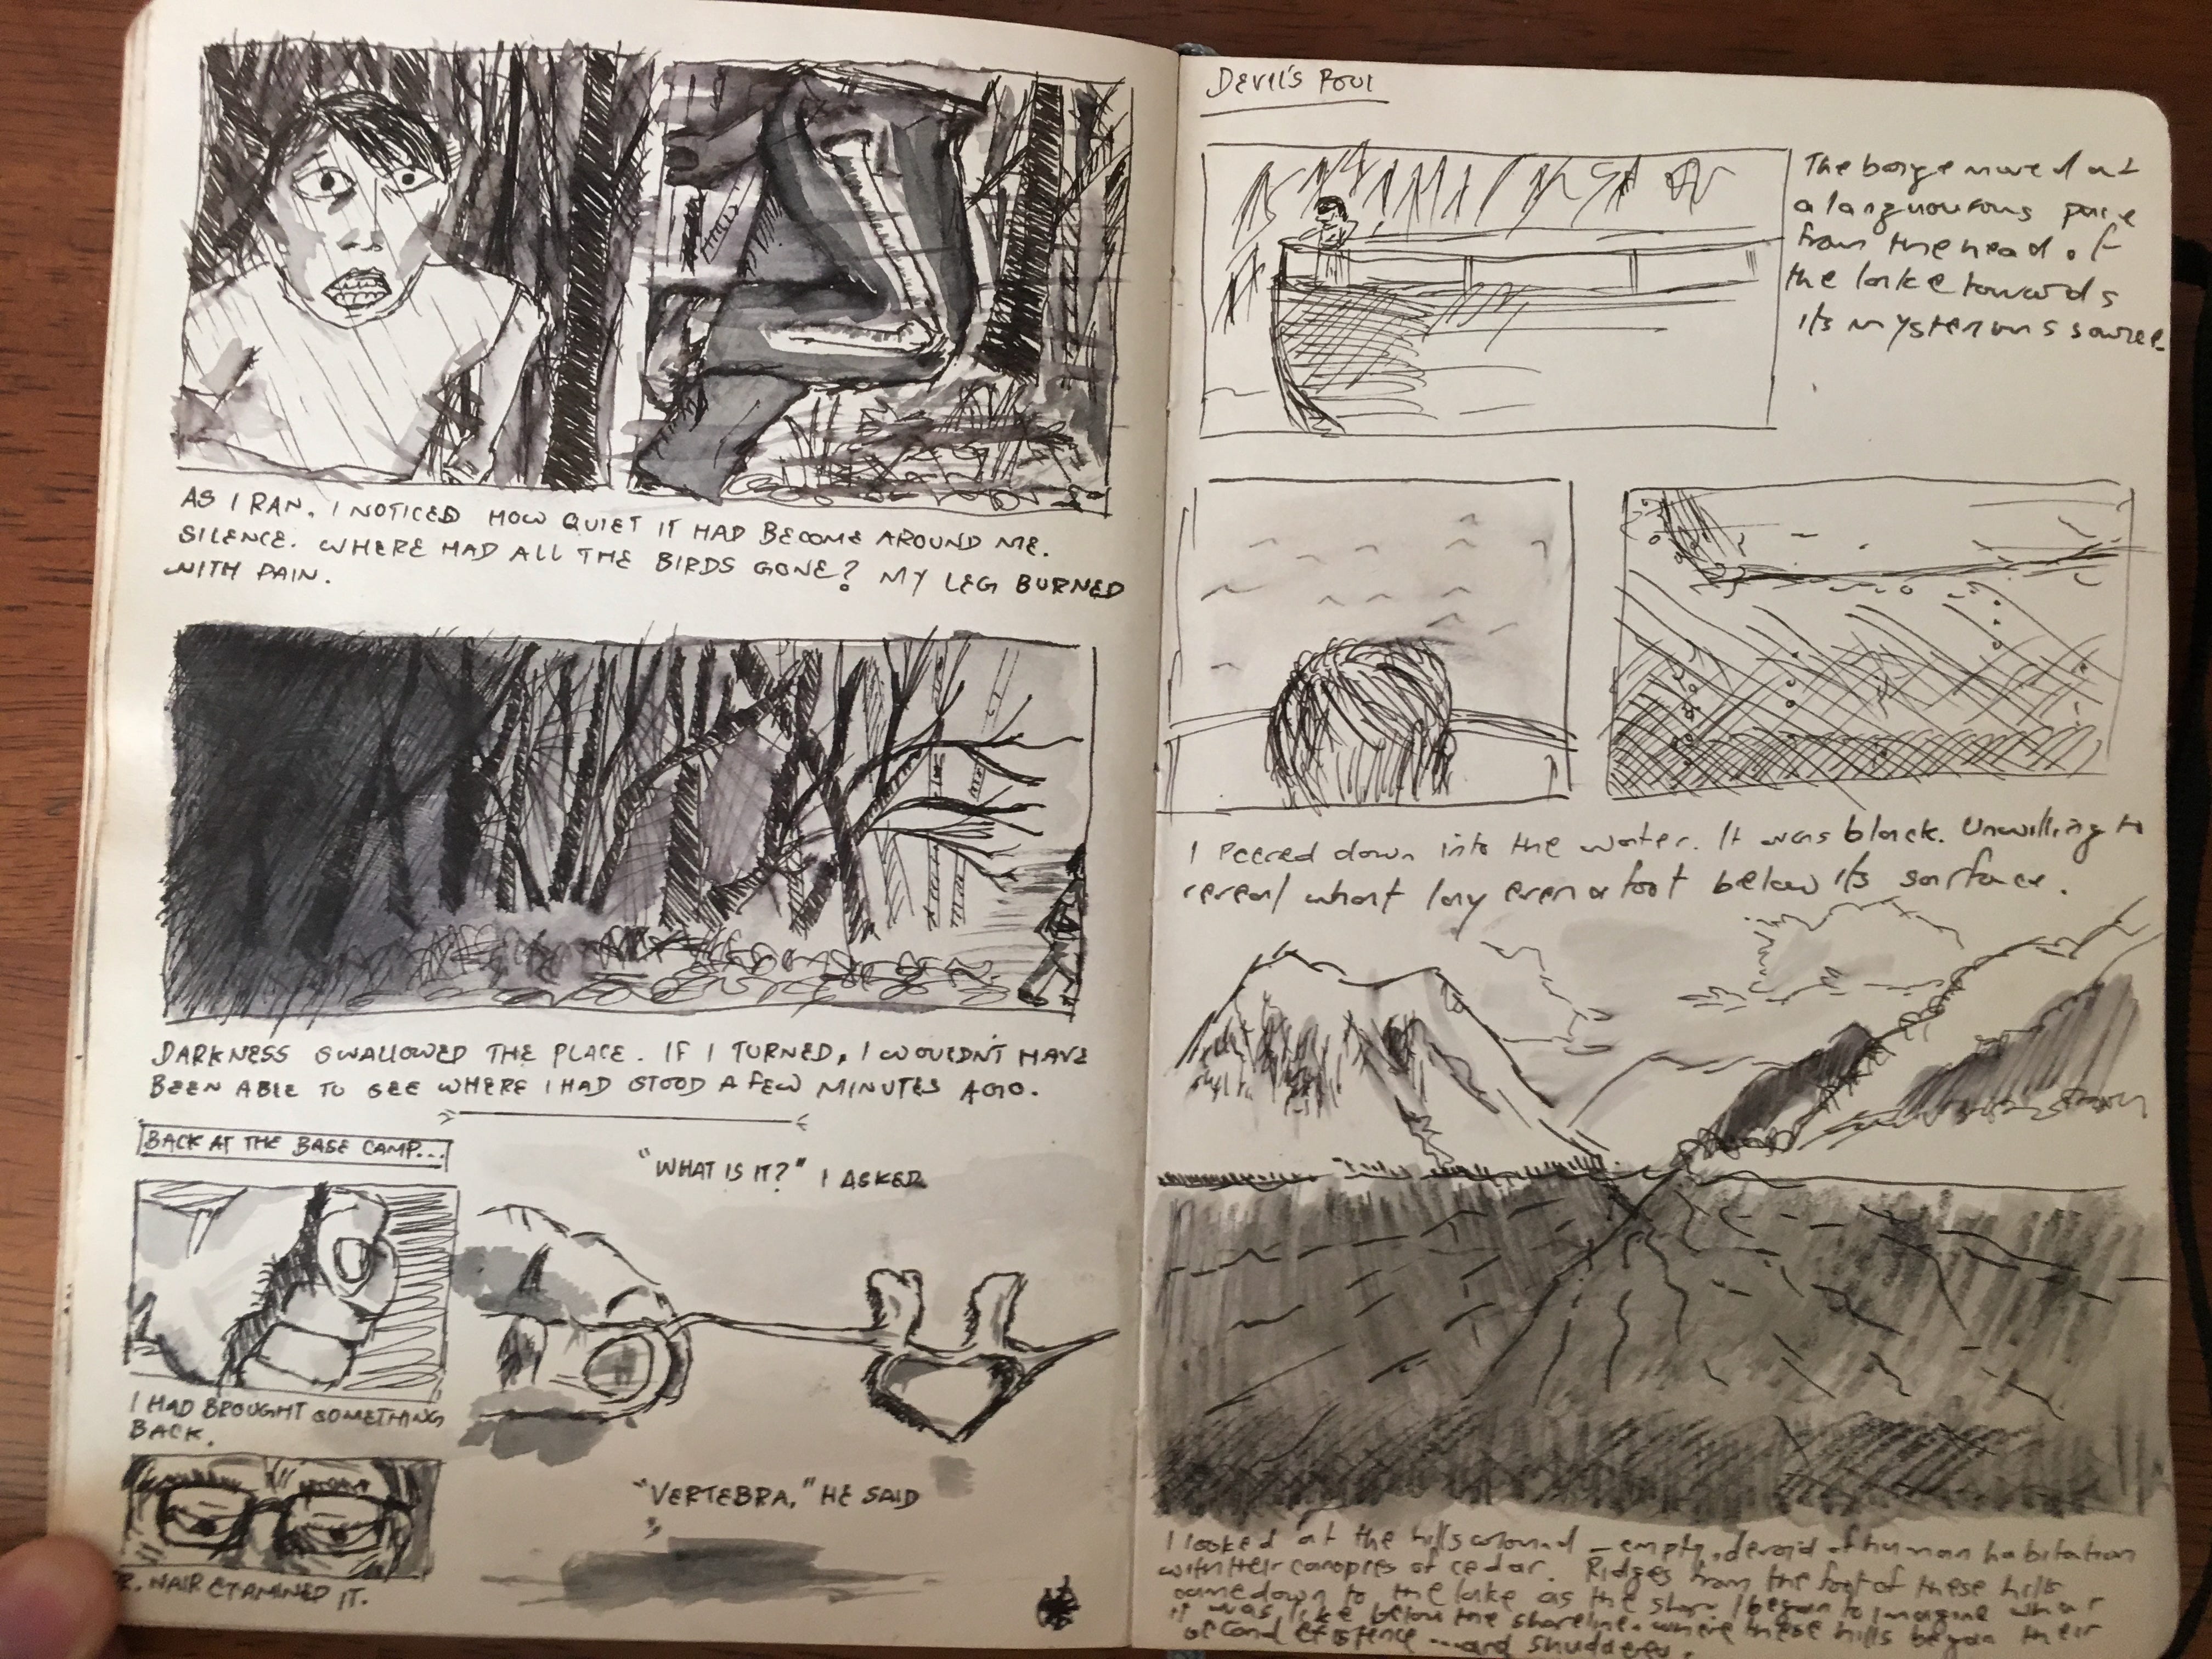 AS I RAN, I NOTICED HOW QUIET IT HAD BECOME AROUND ME.
SILENCE. WHERE HAD ALL THE BIRDS GONE? MY LEG BURNED
WITH PAIN.
DARKNESS SWALLOWED THE PLACE. IF I TURNED, I WOULDN'T HAVE
BEEN ABLE TO SEE WHERE I HAD STOOD A FEW MINUTES AGO.
BACK AT THE BASE CAMP...
"WHAT IS IT?" I ASKED
I HAD BROUGHT SOMETHING
BACK.
"VERTEBRA," HE SAID
R. NAIR EXAMINED IT.
DEVIL'S POOL
The barge moved at
a languourous pace
from the head of
the lake towards
its mysterious source.
I peered down into the water. It was black. Unwilling to
reveal what lay even a foot below its surface.
I looked at the hills around - empty, devoid of human habitation
with their canopies of cedar. Ridges from the foot of these hills
came down to the lake as the shore. I began to imagine what
it was like below the shoreline, where these hills began their
second existence ... and shuddered.